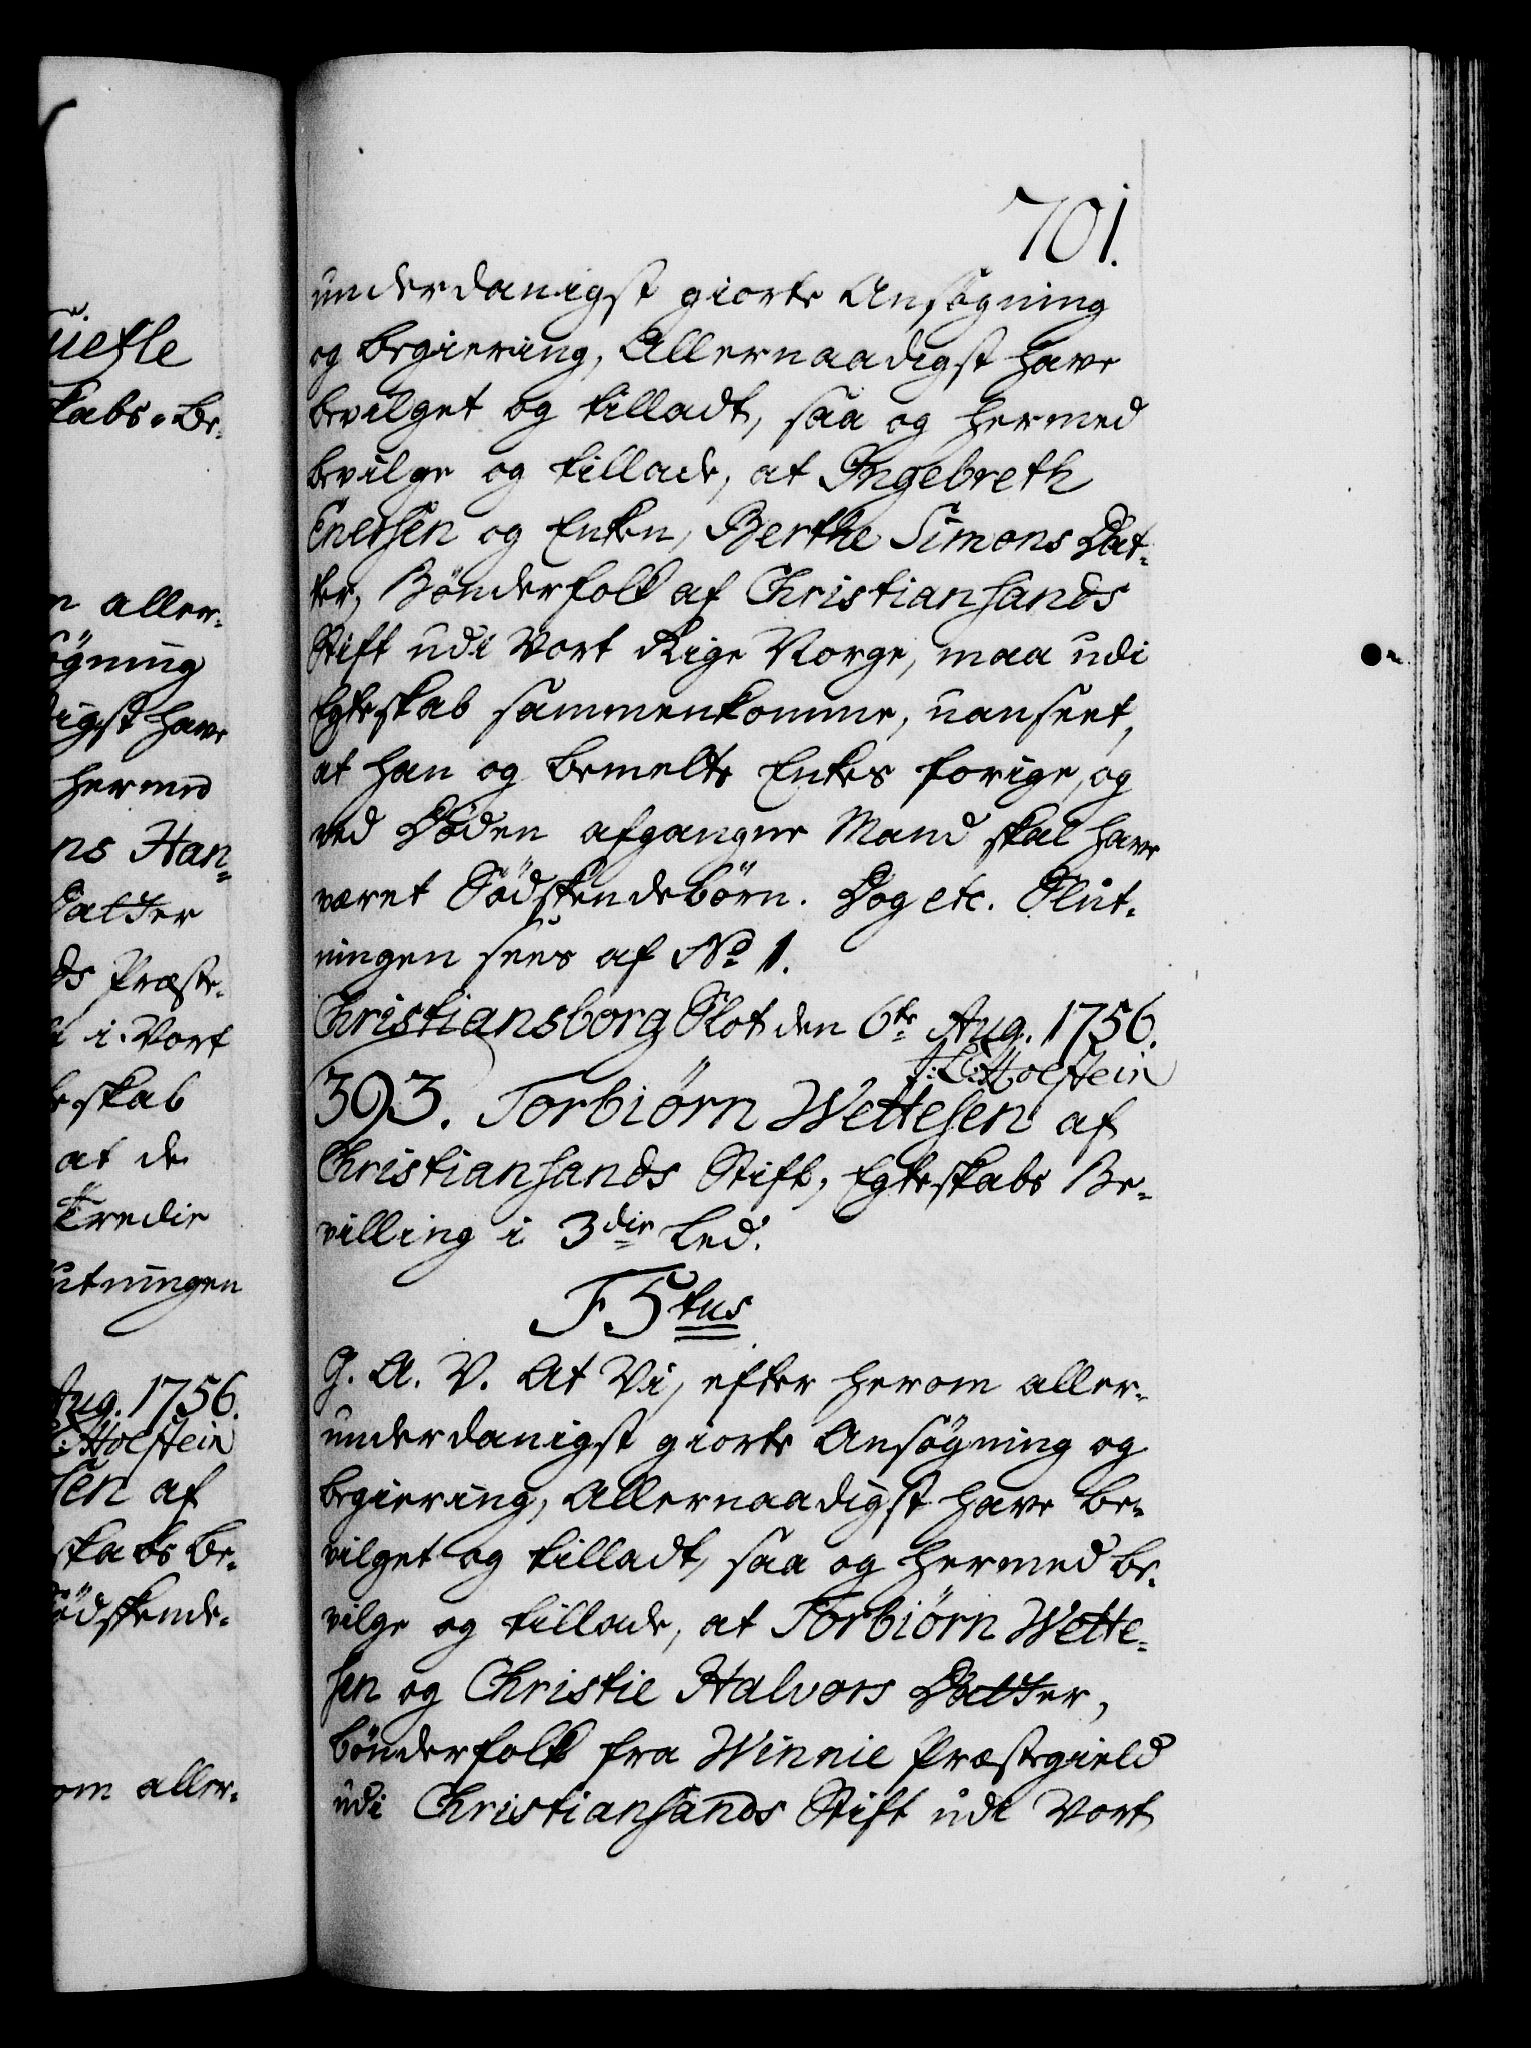 701.
underdanigst giorte Ansøgning
og begiering, Allernaadigst have
bevilget og tilladt, saa og hermed
bevilge og tillade, at Ingebreth
Enersen og Enken, Berthe Simons Dat-
ter, Bönderfolk af Christiansands
Stift udi Vort Rige Norge, maa udi
Egteskab sammenkomme, uanseet,
at han og bemelte Enkes forige, og
ved Döden afgangne Mand skal have
været Södskendebörn. Dog etc. Slut-
ningen sees af No 1.
Christiansborg Slot den 6te Aug. 1756.
J: L: Holstein
393. Torbiörn Wettesen af
Christiansands Stift, Egteskabs Be-
villing i 3die Led.
F 5tus
G. A. V. At Vi, efter herom aller-
underdanigst giorte Ansögning og
begiering, Allernaadigst have be-
vilget og tilladt, saa og hermed be-
vilge og tillade, at Torbiörn Wette-
sen og Christie Halvors Datter,
bönderfolk fra Winnie Præstegield
udi Christiansands Stift udi Vort
kabs-Be-
aller-
ögning
digst have
hermed
ns Han-
Datter
ds Præste-
i Vort
skab
at de
Tredie
utningen
Aug. 1756.
L: Holstein
sen af
skabs Be-
södskende-
om aller-